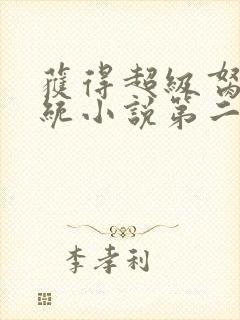 獲得超級
統小說第二
李孝利